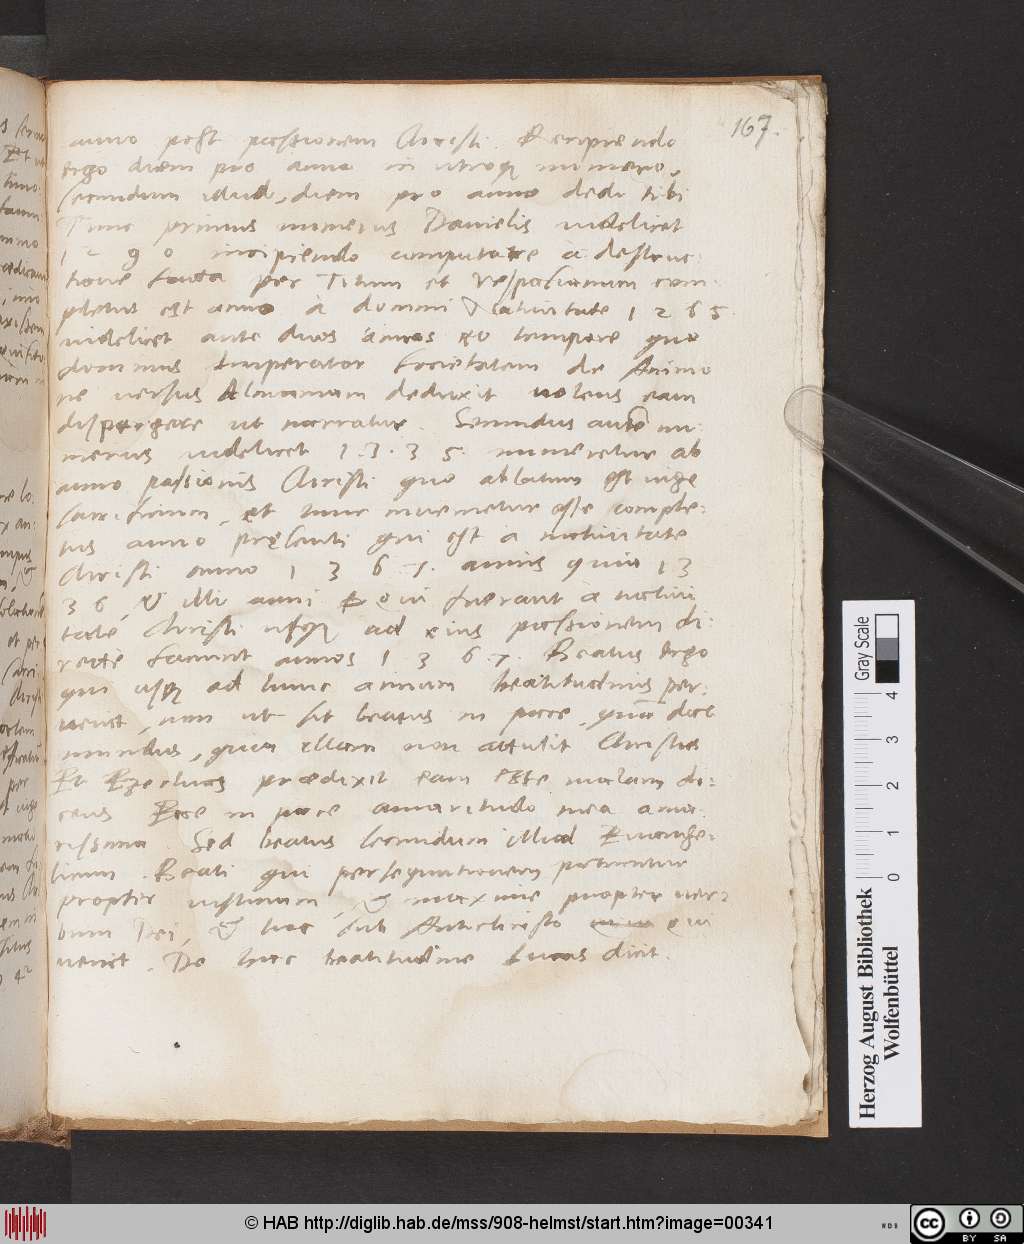 167.
anno post passionem Christi. Recipiendo
ergo diem pro anno in utroq numero,
secundum illud, diem pro anno dedi tibi
Tunc primus numerus Danielis videlicet
1290 incipiendo computare à destruc-
tione facta per Titum et Vespasianum com-
pletus est anno à domini Nativitate 1265
videlicet ante duos annos eo tempore quo
dominus Imperator societatem de Anino
ne versus Alamaniam deduxit volens eam
dispergere ut narratur. Secundus autē nu-
merus videlicet 1.3.3 5. numeretur ab
anno passionis Christi quo ablatum est iuge
sacrificium, et tunc invenietur esse comple-
tus anno pręsenti qui est a nativitate
Christi anno 1 3 6 7. annis quia 13
36, & illi anni qui fuerant à nativi
tate Christi usq ad eius passionem di-
recte faciunt annos 1 3 6 7. Beatus ergo
qui usq ad hunc annum beatitudinis per-
venit, non ut sit beatus in pace, quā dat
mundus, quia illam non attulit Christus
Et Ezechias prædixit eam esse malam di-
cens Ecce in pace amaritudo mea ama-
rissima. Sed beatus secundum illud Evange-
licum. Beati qui persequutionem patiuntur
propter iustitiam, & maxime propter ver-
bum Dei, & hoc sub Antichristo qui
venit. De hac beatitudine Lucas dicit.
Herzog August Bibliothek
Wolfenbüttel
Gray Scale
0 1 2 3 4
© HAB http://diglib.hab.de/mss/908-helmst/start.htm?image=00341
WDB
CC BY SA